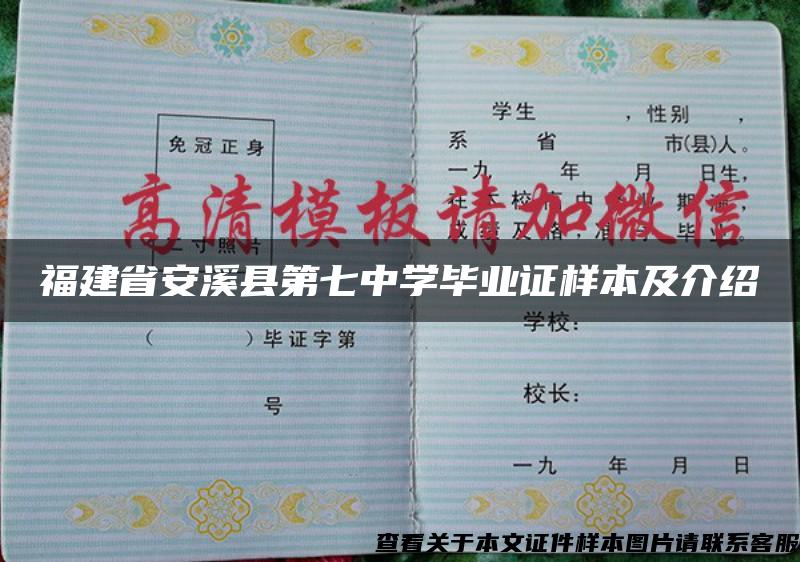 学生 ，性别 ，
系 省 市(县)人。
一九 年 月 日生，
免冠正身
高清模板请加微信
二寸照片
福建省安溪县第七中学毕业证样本及介绍
学校：
（ ）毕证字第
号
校长：
一九 年 月 日
查看关于本文证件样本图片请联系客服